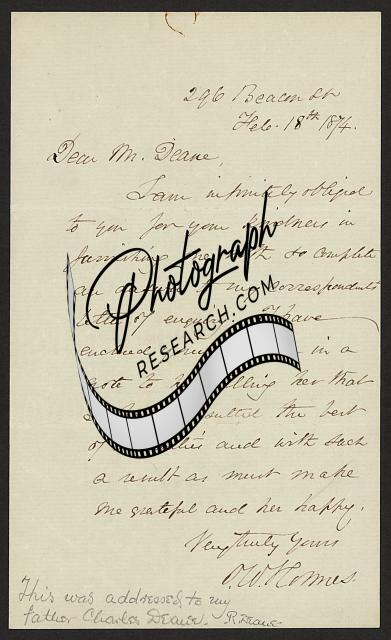 296 Beacon St
Feb. 18th 1874.
Dear Mr. Deane,
I am infinitely obliged
to you for your kindness in
furnishing me with so complete
an answer to my correspondent's
letter of enquiry. I have
enclosed in a
note to her telling her that
I have consulted the best
of authorities and with such
a result as must make
me grateful and her happy.
Very truly yours
O. W. Holmes.
This was addressed to my
father Charles Deane. R. Deane
Photograph
RESEARCH.COM